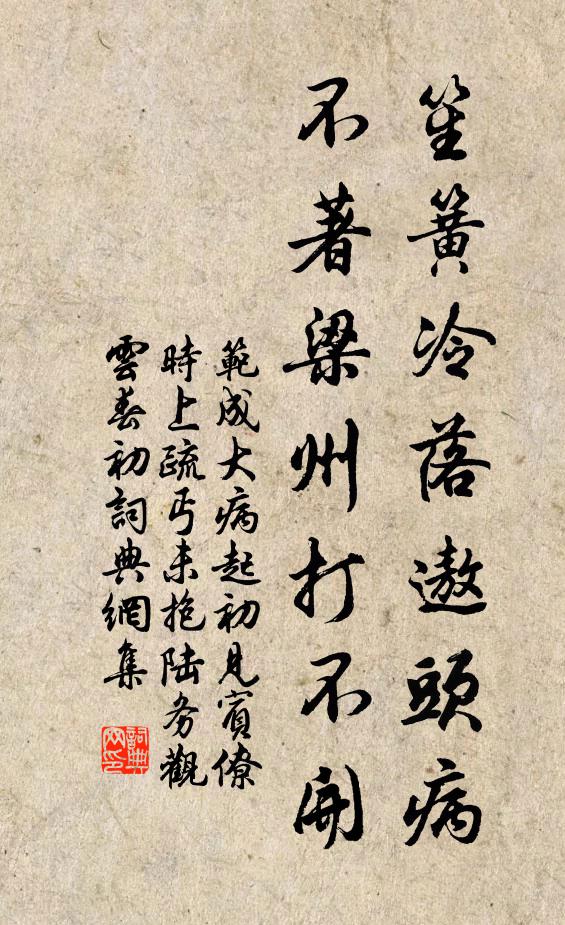 笙簧冷落遨頭病
不著梁州打不開
範成大病起初見賓僚
時上疏丐未抱陸务觀
雲春初詞典網集
詞典
网印